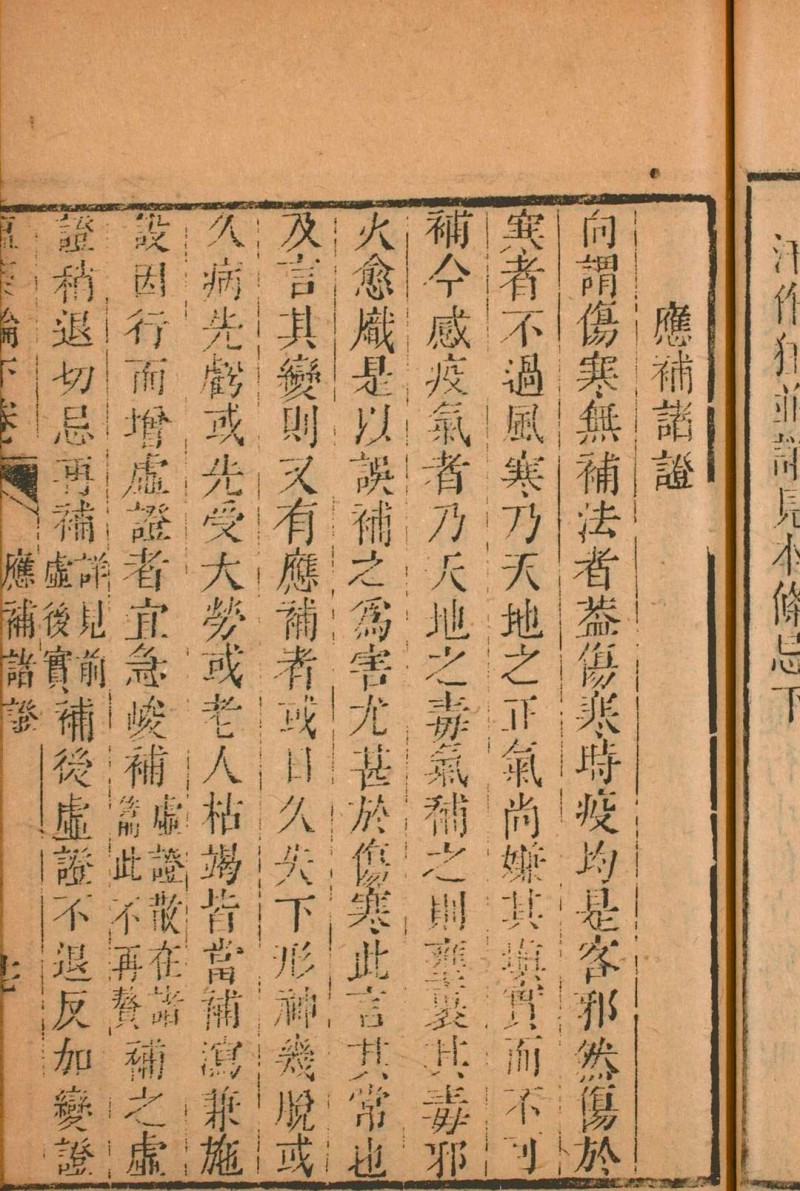 汗作狂並詳見本條忌下
應補諸證
向謂傷寒無補法者葢傷寒時疫均是客邪然傷於
寒者不過風寒乃天地之正氣尚嫌其填實而不可
補今感疫氣者乃天地之毒氣補之則壅裹其毒邪
火愈熾是以誤補之爲害尤甚於傷寒此言其常也
及言其變則又有應補者或日久失下形神幾脫或
久病先虧或先受大勞或老人枯竭皆當補瀉兼施
設因行而增虛證者宜急峻補虛證散在諸篇此不再贅補之虛
證稍退切忌再補詳見前虛後實補後虛證不退反加變證
應補諸證